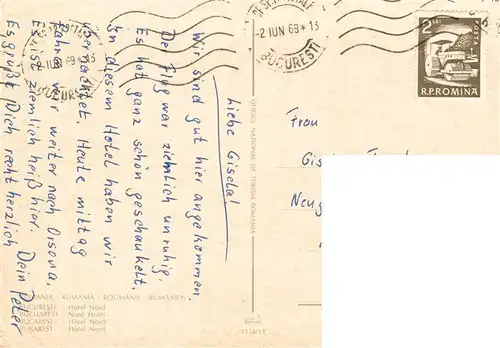 Liebe Gisela!
Wir sind gut hier angekommen
Der Flug war ziemlich unruhig.
Es hat ganz schön geschaukelt.
In diesem Hotel haben wir
übernachtet. Heute mittag
fahren wir weiter nach Orsova.
Es ist ziemlich heiß hier.
Es grüßt Dich recht herzlich Dein Peter
ROMANIA - RUMANIA - ROUMANIE - RUMÄNIEN
BUCUREŞTI - Hotel Nord
BUCHAREST - Nord Hotel
BUCAREST - Hôtel Nord
BUKAREST - Hotel Nord
OFICIUL NATIONAL DE TURISM ROMANIA
-2 IUN 69 * 13
BUCUREŞTI
-2 IUN 69 * 13
BUCUREŞTI
2 LEI
R.P. ROMINA
Frau
Gis
Neug